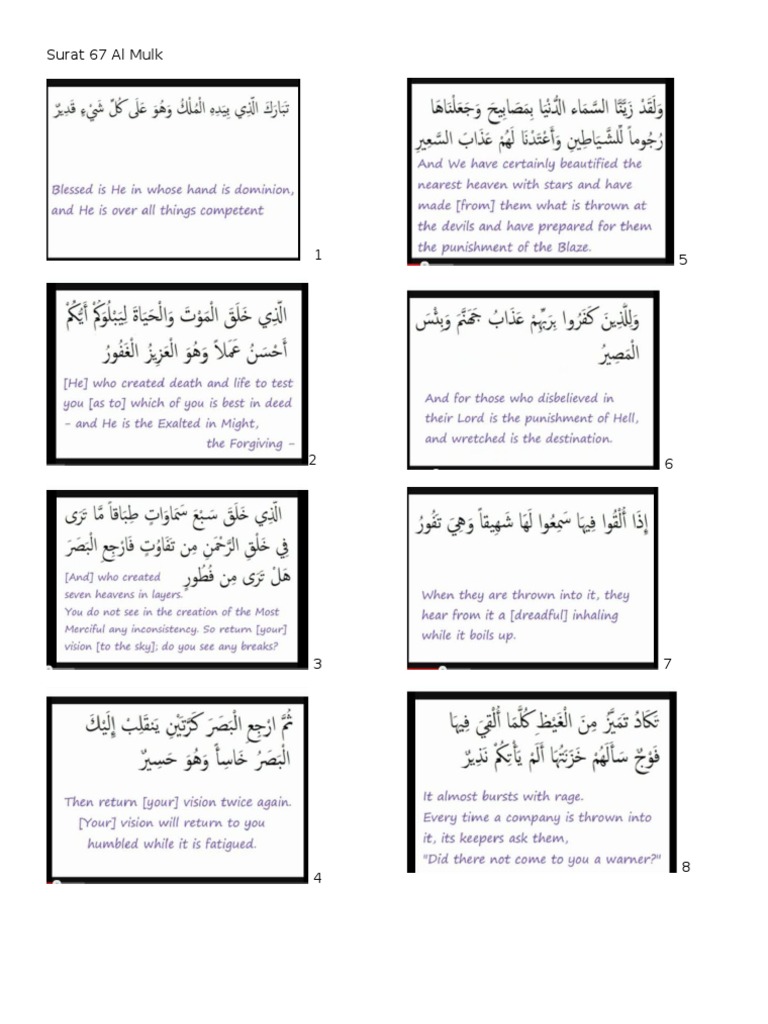 Surat 67 Al Mulk
تَبَارَكَ الَّذِي بِيَدِهِ الْمُلْكُ وَهُوَ عَلَى كُلِّ شَيْءٍ قَدِيرٌ
Blessed is He in whose hand is dominion,
and He is over all things competent
1
الَّذِي خَلَقَ الْمَوْتَ وَالْحَيَاةَ لِيَبْلُوَكُمْ أَيُّكُمْ
أَحْسَنُ عَمَلاً وَهُوَ الْعَزِيزُ الْغَفُورُ
[He] who created death and life to test
you [as to] which of you is best in deed
- and He is the Exalted in Might,
the Forgiving -
2
الَّذِي خَلَقَ سَبْعَ سَمَاوَاتٍ طِبَاقاً مَّا تَرَى
فِي خَلْقِ الرَّحْمَنِ مِن تَفَاوُتٍ فَارْجِعِ الْبَصَرَ
هَلْ تَرَى مِن فُطُورٍ
[And] who created
seven heavens in layers.
You do not see in the creation of the Most
Merciful any inconsistency. So return [your]
vision [to the sky]; do you see any breaks?
3
ثُمَّ ارْجِعِ الْبَصَرَ كَرَّتَيْنِ يَنقَلِبْ إِلَيْكَ
الْبَصَرُ خَاسِأً وَهُوَ حَسِيرٌ
Then return [your] vision twice again.
[Your] vision will return to you
humbled while it is fatigued.
4
وَلَقَدْ زَيَّنَّا السَّمَاء الدُّنْيَا بِمَصَابِيحَ وَجَعَلْنَاهَا
رُجُوماً لِّلشَّيَاطِينِ وَأَعْتَدْنَا لَهُمْ عَذَابَ السَّعِيرِ
And We have certainly beautified the
nearest heaven with stars and have
made [from] them what is thrown at
the devils and have prepared for them
the punishment of the Blaze.
5
وَلِلَّذِينَ كَفَرُوا بِرَبِّهِمْ عَذَابُ جَهَنَّمَ وَبِئْسَ
الْمَصِيرُ
And for those who disbelieved in
their Lord is the punishment of Hell,
and wretched is the destination.
6
إِذَا أُلْقُوا فِيهَا سَمِعُوا لَهَا شَهِيقاً وَهِيَ تَفُورُ
When they are thrown into it, they
hear from it a [dreadful] inhaling
while it boils up.
7
تَكَادُ تَمَيَّزُ مِنَ الْغَيْظِ كُلَّمَا أُلْقِيَ فِيهَا
فَوْجٌ سَأَلَهُمْ خَزَنَتُهَا أَلَمْ يَأْتِكُمْ نَذِيرٌ
It almost bursts with rage.
Every time a company is thrown into
it, its keepers ask them,
"Did there not come to you a warner?"
8